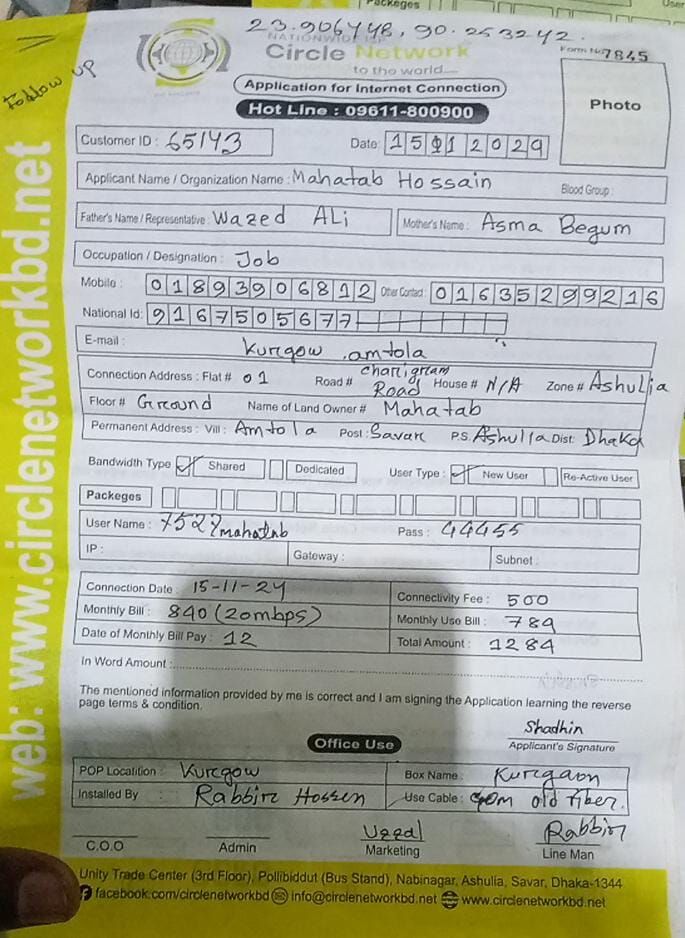 Packeges
User
23.906448, 90.253242.
NATIONWIDE ISP
Circle Network
to the world
Form No 7845
Follow up
Application for Internet Connection
Hot Line : 09611-800900
Photo
Customer ID : 65143
Date: 15 11 2024
Applicant Name / Organization Name : Mahatab Hossain Blood Group :
Father's Name / Representative : Wazed ALi Mother's Name : Asma Begum
Occupation / Designation : Job
Mobile : 01893906812 Other Contact : 01635299216
National Id: 9167505677
E-mail :
Kurgow .amtola
Connection Address : Flat # 01 Road # charigram Road House # N/A Zone # Ashulia
Floor # Ground Name of Land Owner # Mahatab
Permanent Address : Vill : Amtola Post : Savar P.S. Ashulia Dist: Dhaka
Bandwidth Type Shared Dedicated User Type : New User Re-Active User
Packeges
User Name : 7527mahatab Pass : 44455
IP : Gateway : Subnet :
Connection Date : 15-11-24 Connectivity Fee : 500
Monthly Bill : 840 (20mbps) Monthly Use Bill : 784
Date of Monthly Bill Pay : 12 Total Amount : 1284
In Word Amount :
The mentioned information provided by me is correct and I am signing the Application learning the reverse
page terms & condition.
Shadhin
Applicant's Signature
Office Use
POP Localition : Kurgow Box Name : Kurgaon
Installed By : Rabbir Hossen Use Cable : old fiber.
Uzzal Rabbir
C.O.O Admin Marketing Line Man
Unity Trade Center (3rd Floor), Pollibiddut (Bus Stand), Nabinagar, Ashulia, Savar, Dhaka-1344
facebook.com/circlenetworkbd info@circlenetworkbd.net www.circlenetworkbd.net
web: www.circlenetworkbd.net